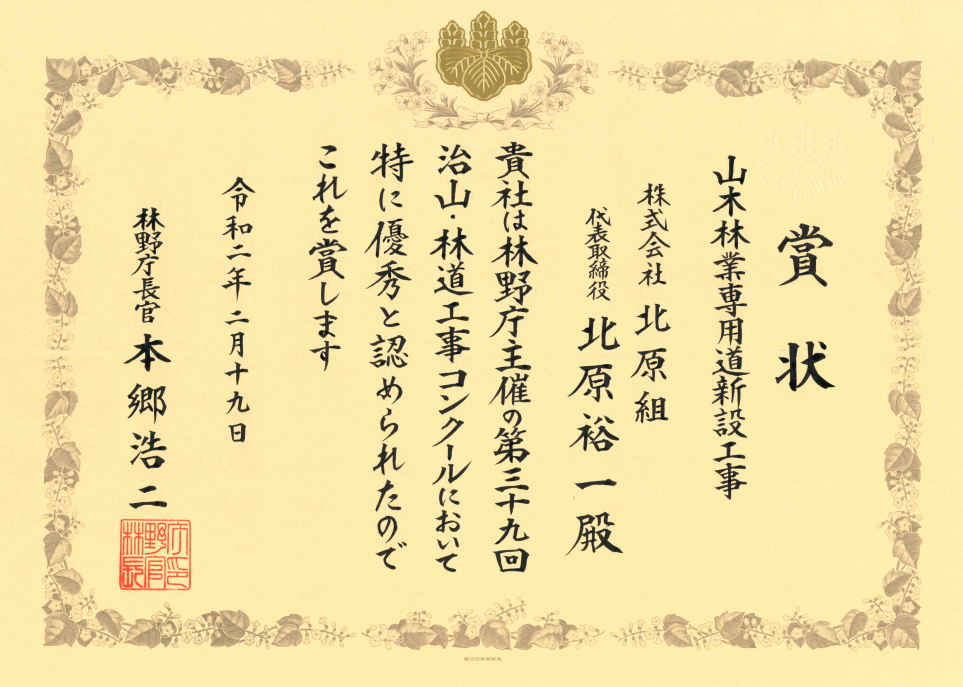 賞状
山木林業専用道新設工事
株式会社 北原組
代表取締役 北原裕一殿
貴社は林野庁主催の第三十九回
治山・林道工事コンクールにおいて
特に優秀と認められたので
これを賞します
令和二年二月十九日
林野庁長官 本郷浩二